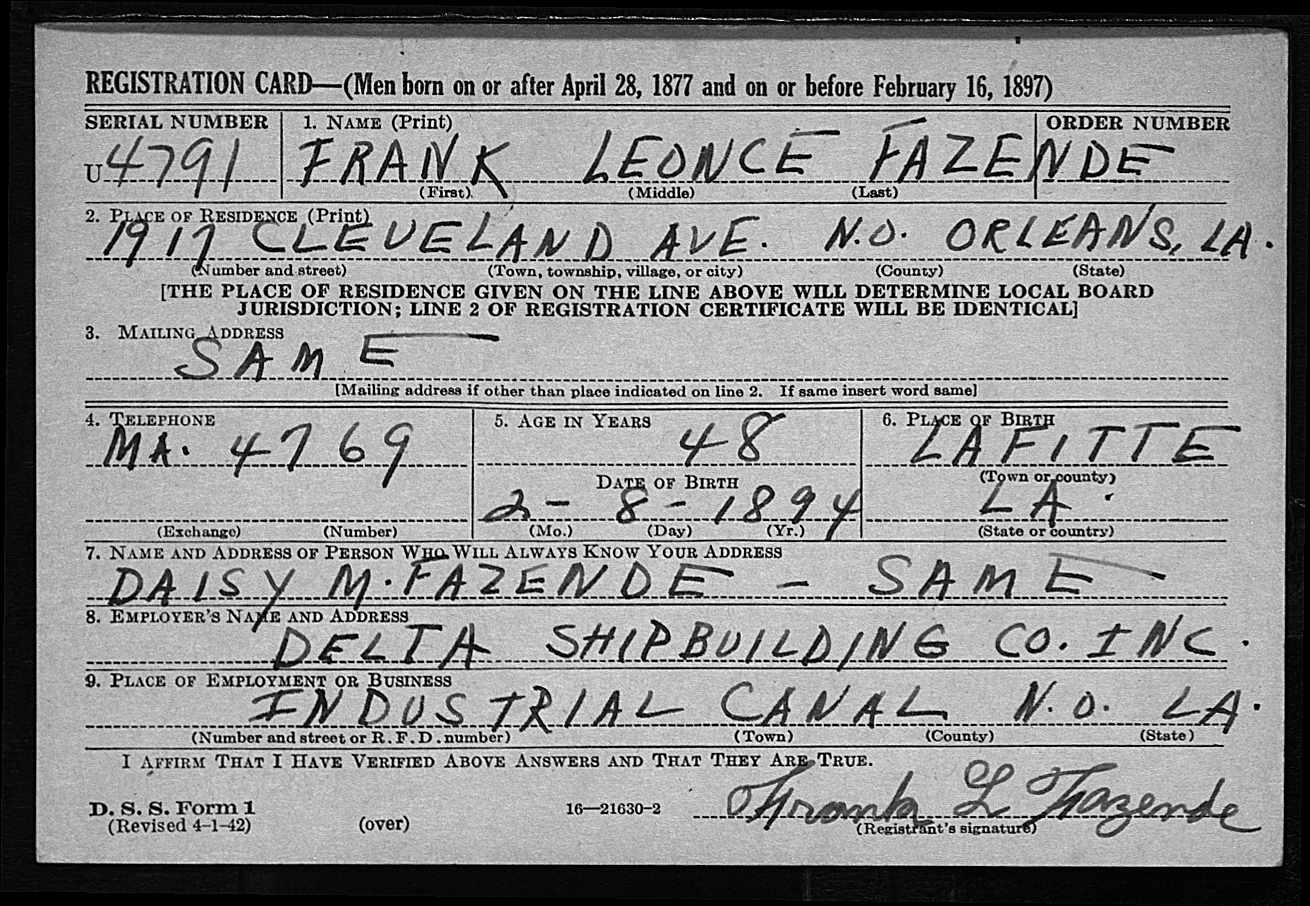 REGISTRATION CARD—(Men born on or after April 28, 1877 and on or before February 16, 1897)
SERIAL NUMBER 1. NAME (Print) ORDER NUMBER
U 4791 FRANK LEONCE FAZENDE
(First) (Middle) (Last)
2. PLACE OF RESIDENCE (Print)
1917 CLEVELAND AVE. N.O. ORLEANS, LA.
(Number and street) (Town, township, village, or city) (County) (State)
[THE PLACE OF RESIDENCE GIVEN ON THE LINE ABOVE WILL DETERMINE LOCAL BOARD
JURISDICTION; LINE 2 OF REGISTRATION CERTIFICATE WILL BE IDENTICAL]
3. MAILING ADDRESS
SAME
[Mailing address if other than place indicated on line 2. If same insert word same]
4. TELEPHONE 5. AGE IN YEARS 6. PLACE OF BIRTH
MA. 4769 48 LAFITTE
DATE OF BIRTH (Town or county)
2 - 8 - 1894 LA.
(Exchange) (Number) (Mo.) (Day) (Yr.) (State or country)
7. NAME AND ADDRESS OF PERSON WHO WILL ALWAYS KNOW YOUR ADDRESS
DAISY M. FAZENDE - SAME
8. EMPLOYER'S NAME AND ADDRESS
DELTA SHIPBUILDING CO. INC.
9. PLACE OF EMPLOYMENT OR BUSINESS
INDUSTRIAL CANAL N.O. LA.
(Number and street or R. F. D. number) (Town) (County) (State)
I AFFIRM THAT I HAVE VERIFIED ABOVE ANSWERS AND THAT THEY ARE TRUE.
D. S. S. Form 1
(Revised 4-1-42) (over) 16—21630-2 Frank L Fazende
(Registrant's signature)